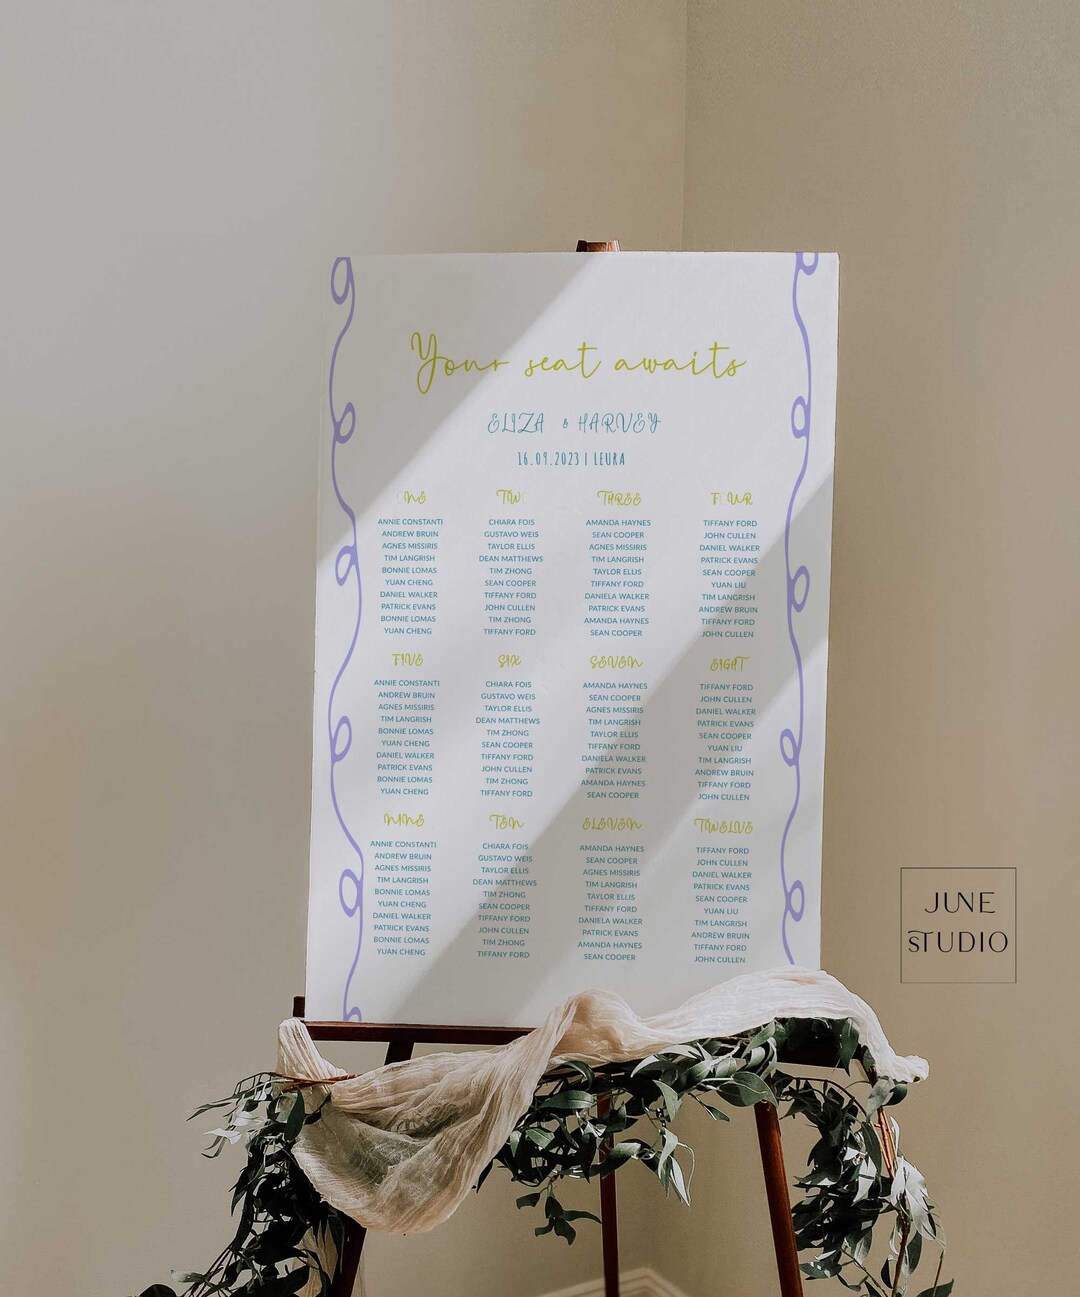 Your seat awaits
ELIZA & HARVEY
16.09.2023 | LEURA
ONE
ANNIE CONSTANTI
ANDREW BRUIN
AGNES MISSIRIS
TIM LANGRISH
BONNIE LOMAS
YUAN CHENG
DANIEL WALKER
PATRICK EVANS
BONNIE LOMAS
YUAN CHENG
TWO
CHIARA FOIS
GUSTAVO WEIS
TAYLOR ELLIS
DEAN MATTHEWS
TIM ZHONG
SEAN COOPER
TIFFANY FORD
JOHN CULLEN
TIM ZHONG
TIFFANY FORD
THREE
AMANDA HAYNES
SEAN COOPER
AGNES MISSIRIS
TIM LANGRISH
TAYLOR ELLIS
TIFFANY FORD
DANIELA WALKER
PATRICK EVANS
AMANDA HAYNES
SEAN COOPER
FOUR
TIFFANY FORD
JOHN CULLEN
DANIEL WALKER
PATRICK EVANS
SEAN COOPER
YUAN LIU
TIM LANGRISH
ANDREW BRUIN
TIFFANY FORD
JOHN CULLEN
FIVE
ANNIE CONSTANTI
ANDREW BRUIN
AGNES MISSIRIS
TIM LANGRISH
BONNIE LOMAS
YUAN CHENG
DANIEL WALKER
PATRICK EVANS
BONNIE LOMAS
YUAN CHENG
SIX
CHIARA FOIS
GUSTAVO WEIS
TAYLOR ELLIS
DEAN MATTHEWS
TIM ZHONG
SEAN COOPER
TIFFANY FORD
JOHN CULLEN
TIM ZHONG
TIFFANY FORD
SEVEN
AMANDA HAYNES
SEAN COOPER
AGNES MISSIRIS
TIM LANGRISH
TAYLOR ELLIS
TIFFANY FORD
DANIELA WALKER
PATRICK EVANS
AMANDA HAYNES
SEAN COOPER
EIGHT
TIFFANY FORD
JOHN CULLEN
DANIEL WALKER
PATRICK EVANS
SEAN COOPER
YUAN LIU
TIM LANGRISH
ANDREW BRUIN
TIFFANY FORD
JOHN CULLEN
NINE
ANNIE CONSTANTI
ANDREW BRUIN
AGNES MISSIRIS
TIM LANGRISH
BONNIE LOMAS
YUAN CHENG
DANIEL WALKER
PATRICK EVANS
BONNIE LOMAS
YUAN CHENG
TEN
CHIARA FOIS
GUSTAVO WEIS
TAYLOR ELLIS
DEAN MATTHEWS
TIM ZHONG
SEAN COOPER
TIFFANY FORD
JOHN CULLEN
TIM ZHONG
TIFFANY FORD
ELEVEN
AMANDA HAYNES
SEAN COOPER
AGNES MISSIRIS
TIM LANGRISH
TAYLOR ELLIS
TIFFANY FORD
DANIELA WALKER
PATRICK EVANS
AMANDA HAYNES
SEAN COOPER
TWELVE
TIFFANY FORD
JOHN CULLEN
DANIEL WALKER
PATRICK EVANS
SEAN COOPER
YUAN LIU
TIM LANGRISH
ANDREW BRUIN
TIFFANY FORD
JOHN CULLEN
JUNE
STUDIO